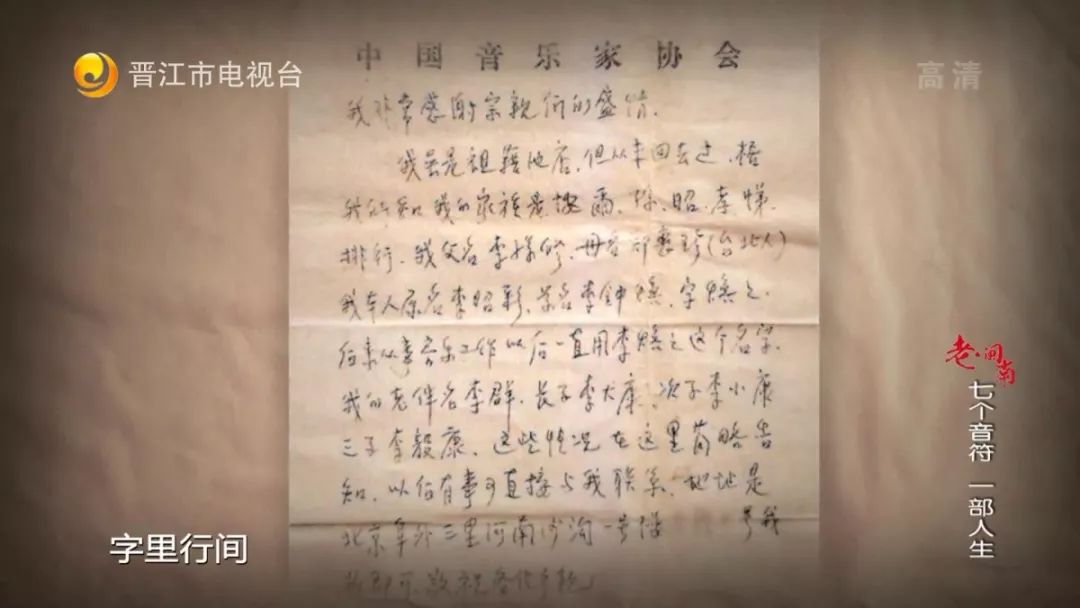 晋江市电视台
高清
中国音乐家协会
我非常感谢宗亲们的盛情.
我虽是祖籍池店,但从未回去过,
我所知我的家族是 孙、昭、孝悌
排行.我父名李孙修,母名 (台北人)
我本人原名李昭彩,学名李钟焕,字焕之.
后来从事音乐工作以后一直用李焕之这个名字.
我的老伴名李群,长子李大康,次子李小康
三子李毅康,这些情况在这里简略告
知,以后有事可直接与我联系,地址是
北京阜外三里河南沙沟一号楼 号我
老闽南
七个音符 一部人生
字里行间